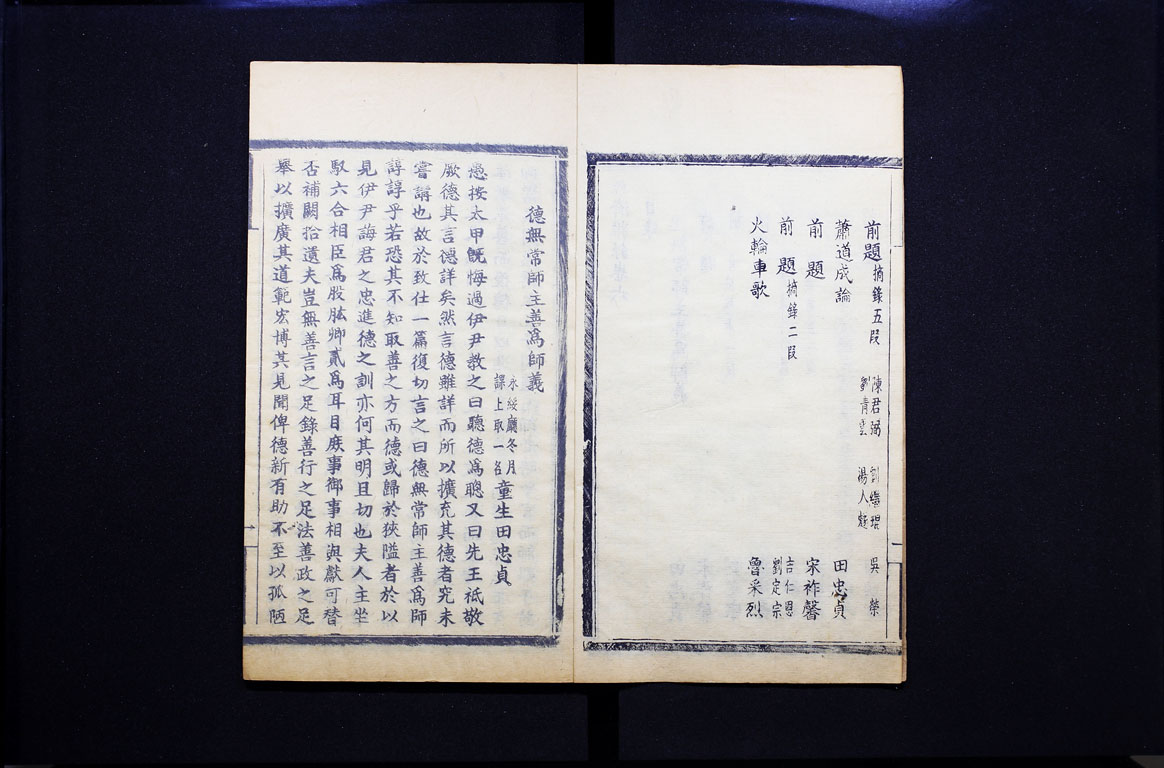 前題摘錄五段 陳君弼 劉繼琨 吳榮
劉青 湯人
蕭道成論 田忠貞
前題 宋祚馨
前題摘錄二段 吉仁恩
劉定宗
火輪車歌 魯采烈
德無常師主善爲師義
永綏廳冬月
課上取一名 童生田忠貞
愚按太甲旣悔過伊尹教之曰聽德爲聰又曰先王祗敬
厥德其言德詳矣然言德雖詳而所以擴充其德者究未
嘗講也故於致仕一篇復切言之曰德無常師主善爲師
諄諄乎若恐其不知取善之方而德或歸於狹隘者於以
見伊尹誨君之忠進德之訓亦何其明且切也夫人主坐
馭六合相臣爲股肱卿貳爲耳目庶事御事相與獻可替
否補闕拾遺夫豈無善言之足錄善行之足法善政之足
舉以擴廣其道範宏博其見聞俾德新有助不至以孤陋